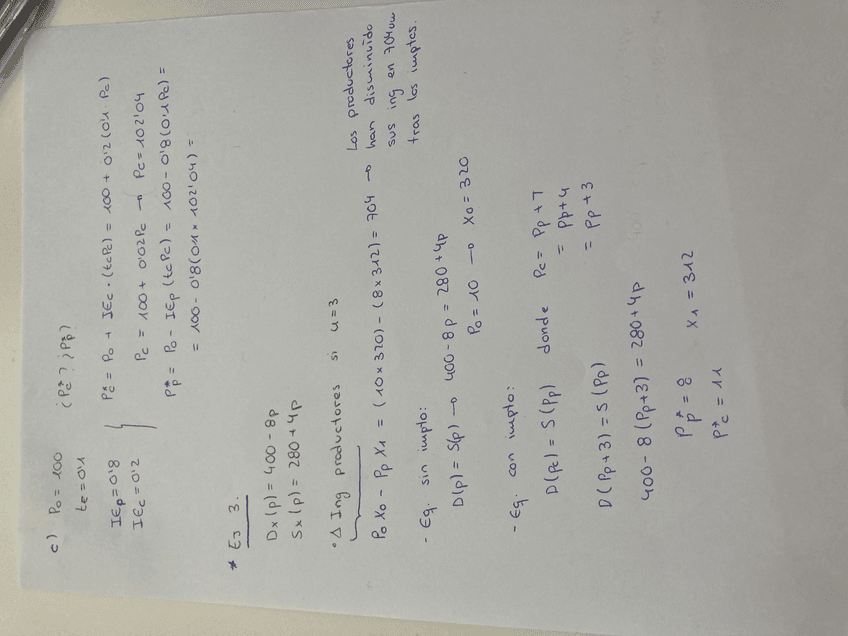 c) Po = 100 ¿Pc*? ¿Pp*?
tc = 0'1
IEp = 0'8
IEc = 0'2
Pc* = Po + IEc · (tcPc) = 100 + 0'2 (0'1 · Pc)
Pc = 100 + 0'02Pc → Pc = 102'04
Pp* = Po - IEp (tcPc) = 100 - 0'8 (0'1Pc) =
= 100 - 0'8 (0'1 x 102'04) =
* Ej 3.
Dx (p) = 400 - 8p
Sx (p) = 280 + 4p
· Δ Ing productores si u = 3
Po Xo - Pp X1 = (10 x 320) - (8 x 312) = 704 → Los productores
han disminuido
sus ing en 704um
tras los imptos.
- Eq. sin impto:
D(p) = S(p) → 400 - 8p = 280 + 4p
Po = 10 → Xo = 320
- Eq. con impto:
D(pc) = S(Pp) donde Pc = Pp + T
= Pp + u
= Pp + 3
D(Pp + 3) = S(Pp)
400 - 8 (Pp + 3) = 280 + 4p
Pp* = 8 X1 = 312
Pc* = 11